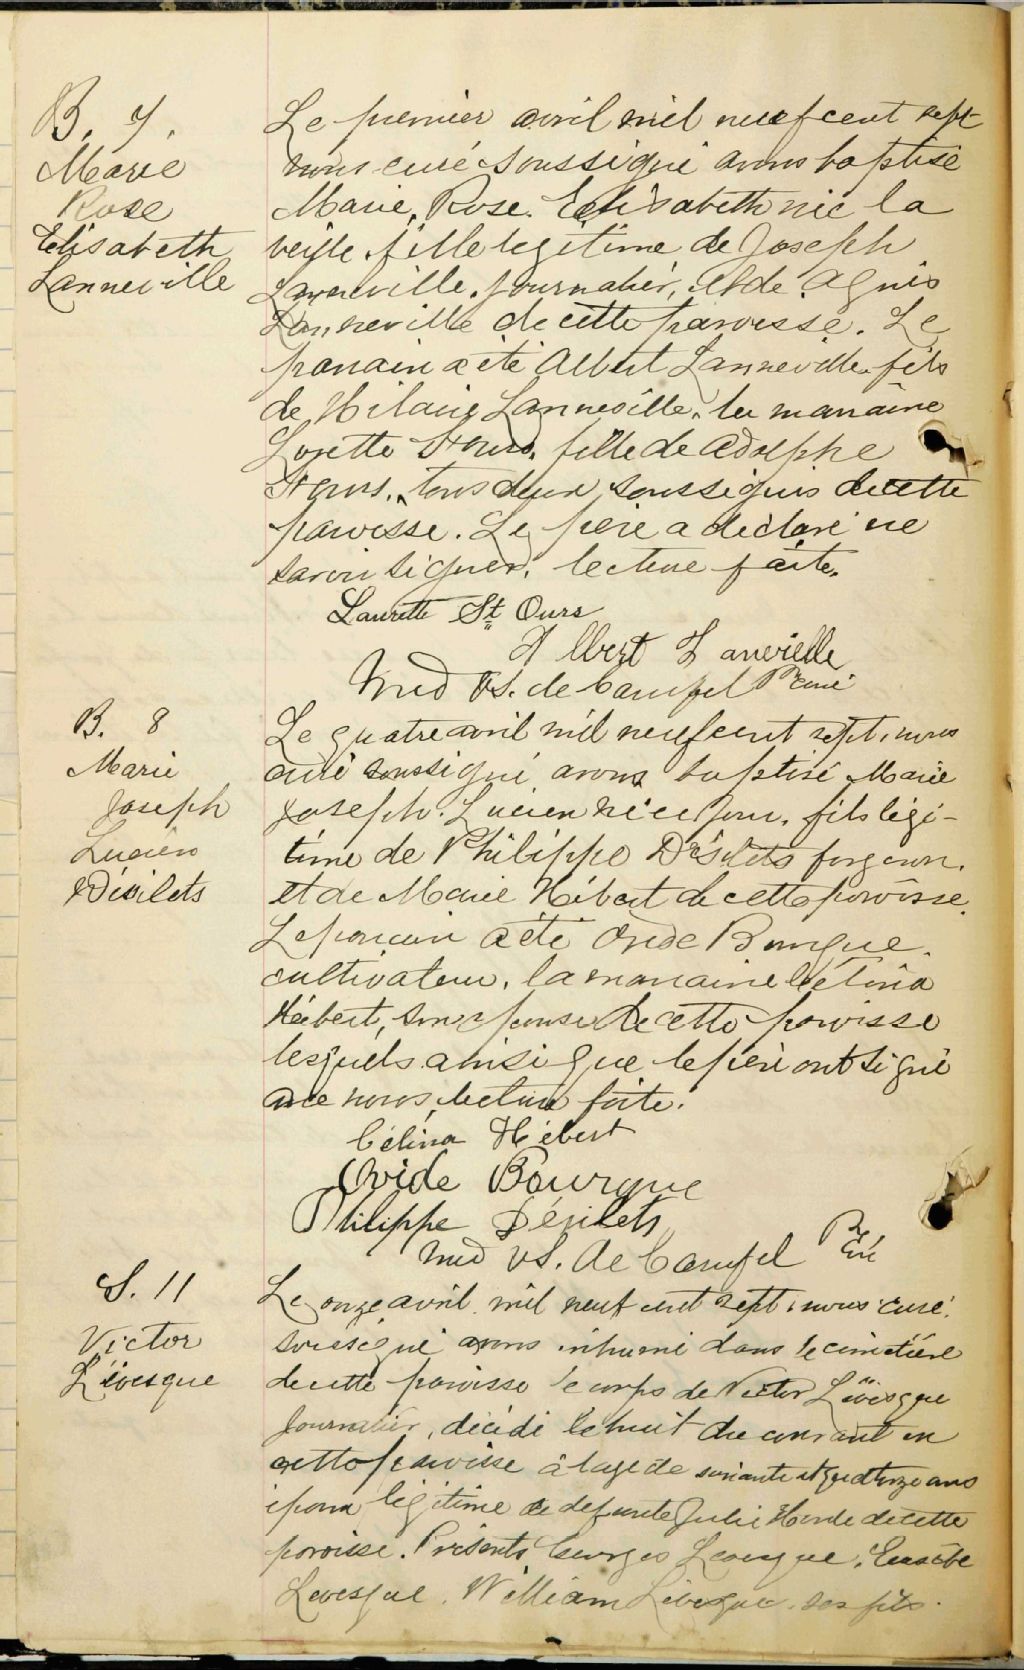 B. 7.
Marie
Rose
Elisabeth
Lanneville
Le premier avril mil neuf cent sept
nous curé soussigné avons baptisé
Marie, Rose. Elisabeth née la
veille. fille légitime de Joseph
Lanneville. journalier, et de Agnès
Lanneville de cette paroisse. Le
parrain a été Albert Lanneville fils
de Hilaire Lanneville. la marraine
Lorette St Ours. fille de Adolphe
St Ours. tous deux soussignés de cette
paroisse. Le père a déclaré ne
savoir signer. lecture faite.
Laurette St Ours
Albert Lanville
Ptre curé
B. 8
Marie
Joseph
Lucien
Désilets
Le quatre avril mil neuf cent sept, nous
curé soussigné avons baptisé Marie
Joseph. Lucien né ce jour. fils légi-
time de Philippe Désilets forgeron.
et de Marie Hébert de cette paroisse.
Le parrain a été Ovide Bourque.
cultivateur. la marraine Célina
Hébert, son épouse de cette paroisse
lesquels ainsi que le père ont signé
avec nous, lecture faite.
Célina Hébert
Ovide Bourque
Philippe Désilets
Ptre Curé
S. 11
Victor
Lévesque
Le onze avril mil neuf cent sept, nous curé
soussigné avons inhumé dans le cimetière
de cette paroisse le corps de Victor Lévesque
journalier, décédé le huit du courant en
cette paroisse à l'age de soixante et quatorze ans
époux légitime de defunte Julie de cette
paroisse. Présents Georges Levesque, Eusèbe
Levesque. William Lévesque. ses fils.